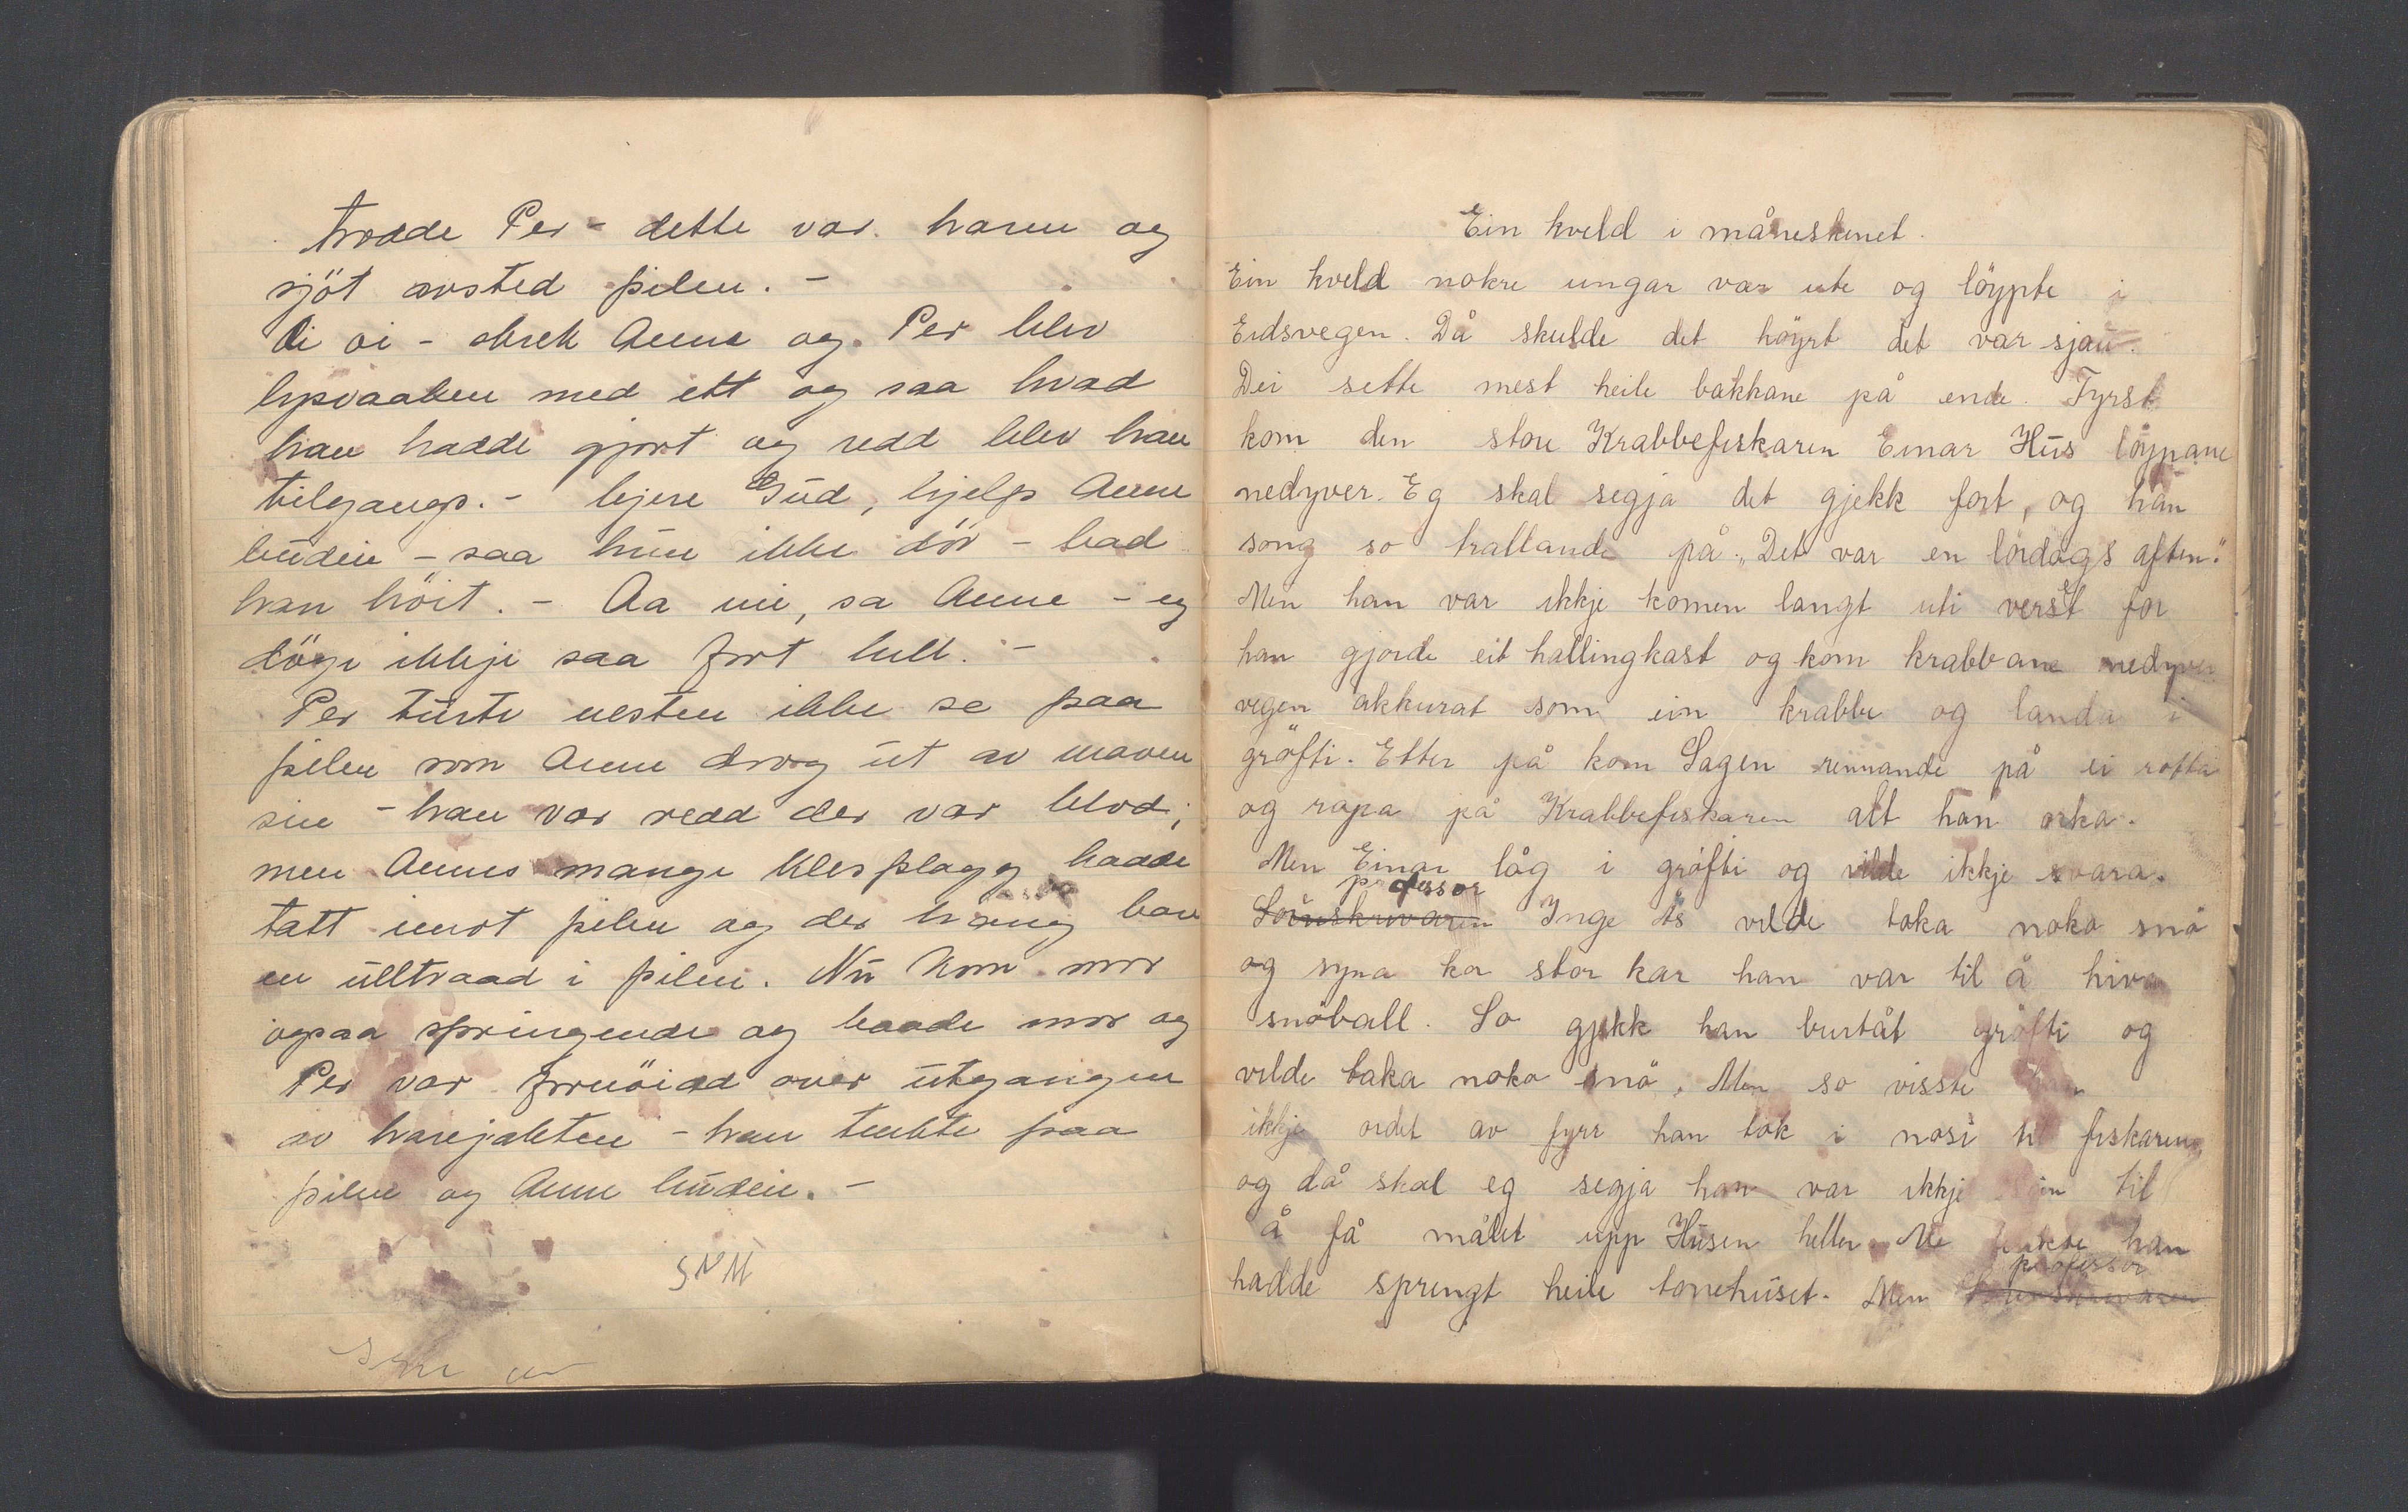 trodde Per - dette var haren og
sjöt avsted pilen. -
Oi oi - skrek Anne og Per blev
lysvaaken med ett og saa hvad
han hadde gjort og redd blev han
tilgangs. - kjere Gud, hjelp Anne
budeie - saa hun ikke dör - bad
han höit. - Aa nei, sa Anne - eg
döyr ikkje saa fort hell. -
Per turte nesten ikke se paa
pilen som Anne drog ut av maven
sin - han var redd der var blod;
men Annes mange klesplagg hadde
tatt imot pilen og der hang bare
en ulltraad i pilen. Nu kom mor
ogsaa springende og baade mor og
Per var fornöied over utgangen
av harejakten - han tenkte paa
pilen og Anne budeie. -
SNM
Ein kveld i måneskinet.
Ein kveld nokre ungar var ute og löypte i
Eidsvegen. Då skulde det höyrt det var sjau.
Dei sette mest heile bakkane på ende. Fyrst
kom den store Krabbefiskaren Einar Hus löypane
nedyver. Eg skal segja det gjekk fort, og han
song so trallande på „Det var en lördags aften."
Men han var ikkje komen langt uti verset for
han gjorde eit hallingkast og kom krabbane nedyver
vegen akkurat som ein krabbe og landa i
gröfti. Etter på kom Sagen rennande på ei rotta
og ropa på Krabbefiskaren alt han orka.
Men Einar låg i gröfti og vilde ikkje svara.
professor
Inge Ås vilde taka noko snö
og syna kor stor kar han var til å hiva
snöball. So gjekk han burtåt gröfti og
vilde taka noko snö. Men so visste han
ikkje ordet av fyrr han tok i nosi til fiskaren
og då skal eg segja han var ikkje sein til
å få målet upp Husen heller. Me tenkte han
professor
hadde sprengt heile tonehuset. Men